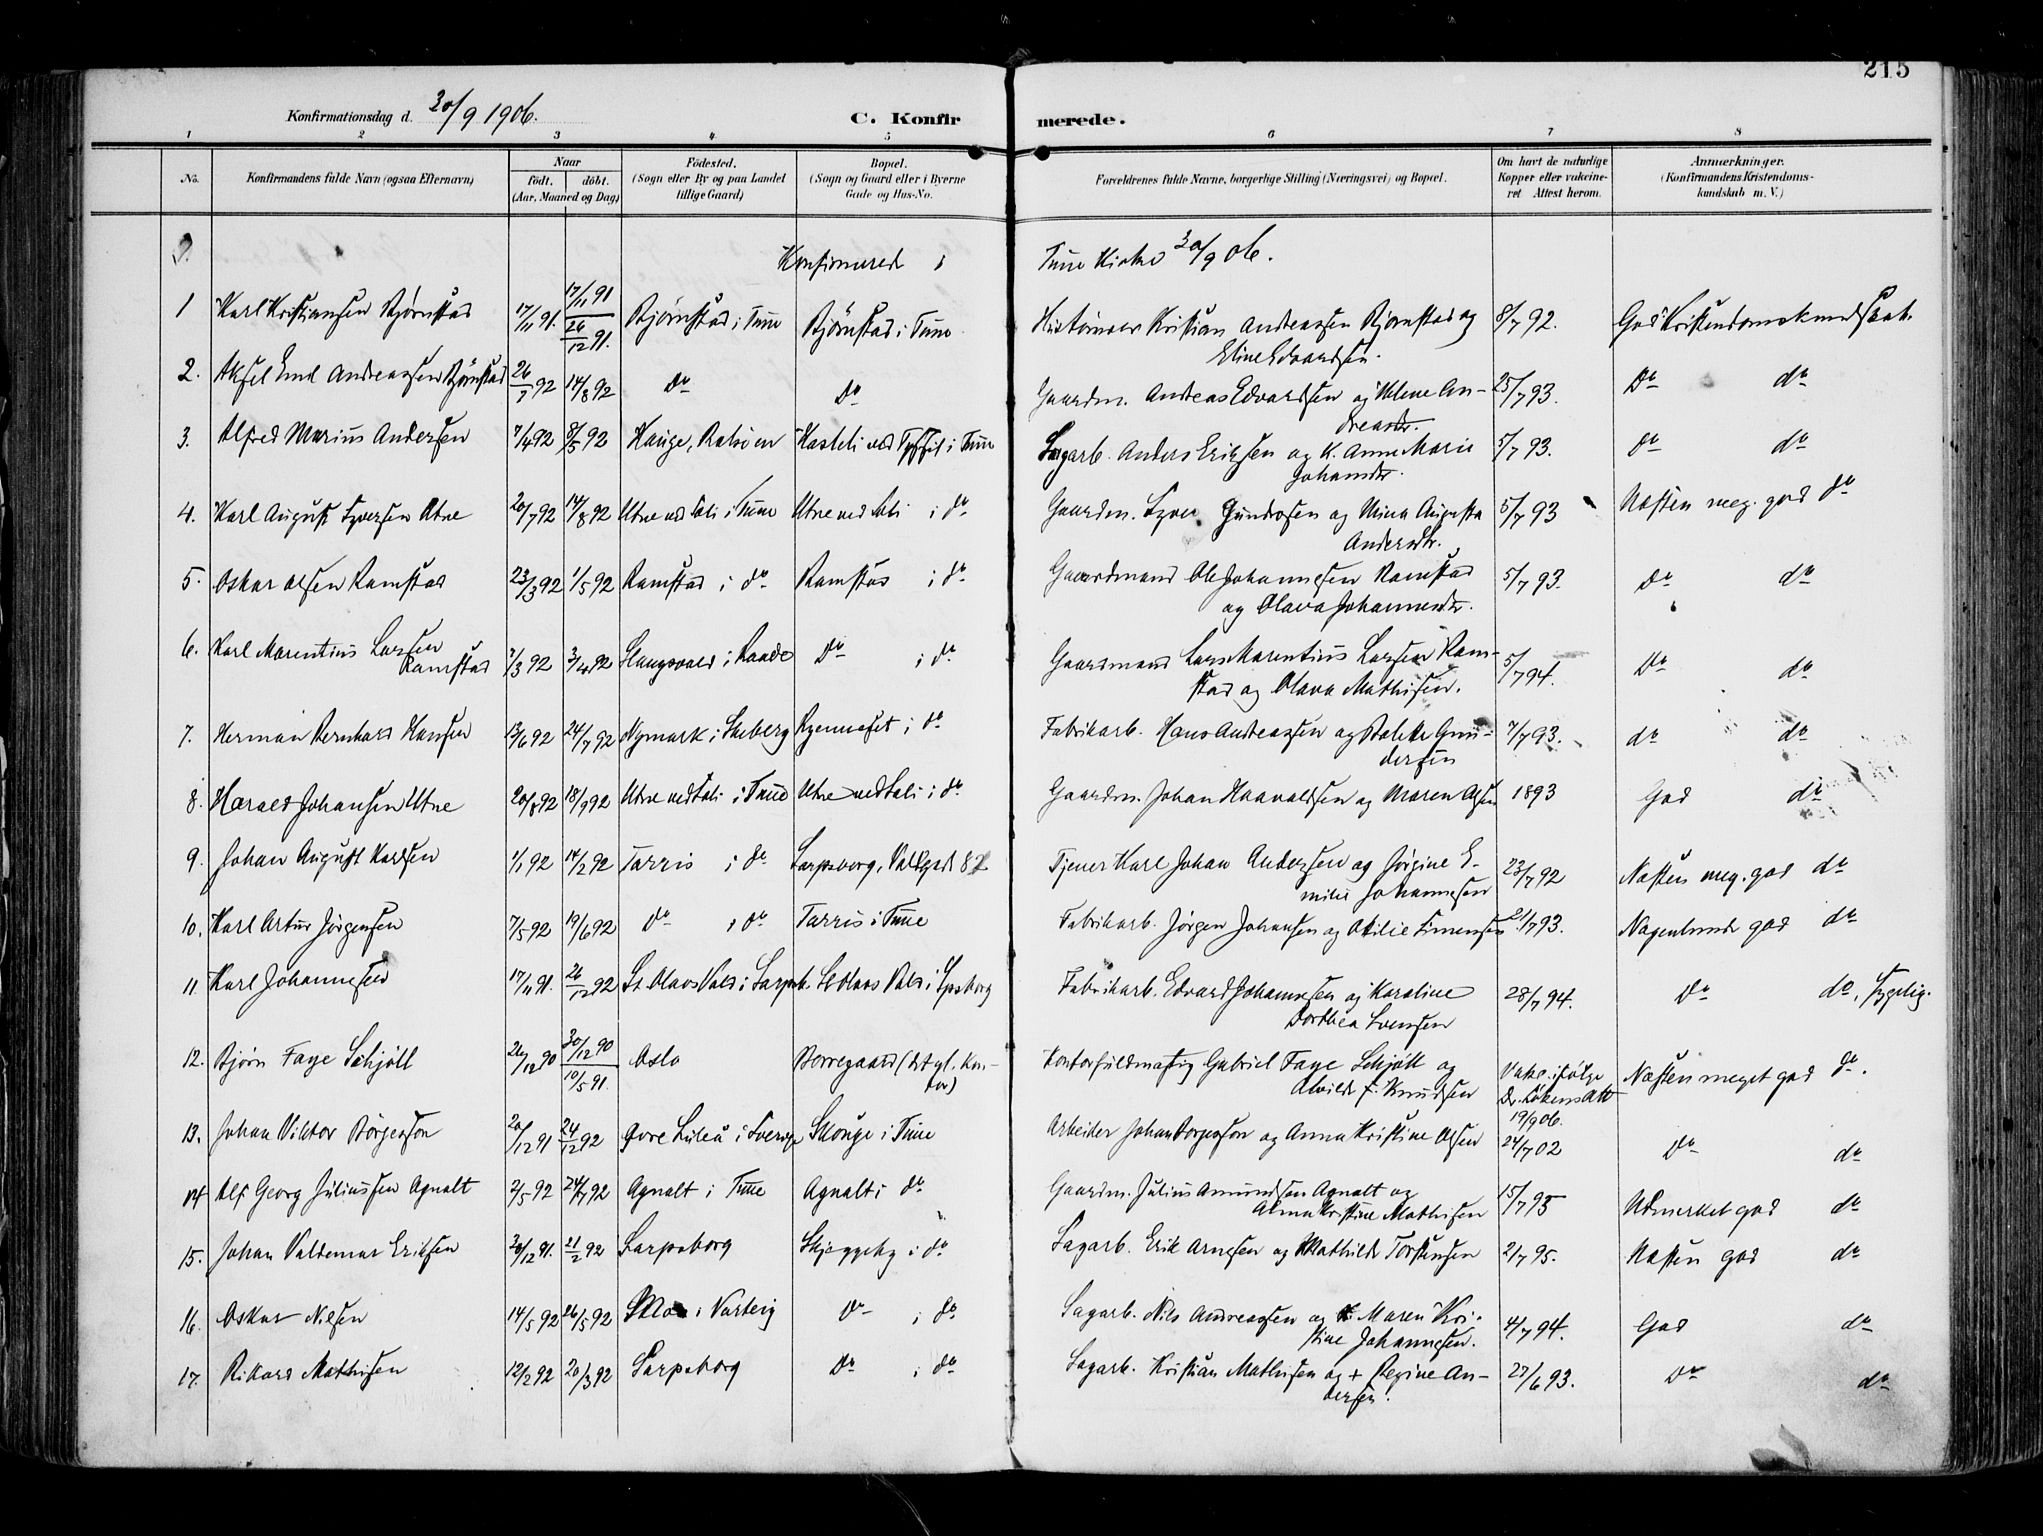 215
Konfirmationsdag d. 30/9 1906. C. Konfirmerede.
1 2 3 4 5 6 7 8
No. Konfirmandens fulde Navn (ogsaa Efternavn) Naar født. døbt. (Aar, Maaned og Dag) Fødested. (Sogn eller By og paa Landet tillige Gaard) Bopæl. (Sogn og Gaard eller i Byerne Gade og Hus-No. Forældrenes fulde Navne, borgerlige Stilling (Næringsvei) og Bopæl. Om havt de naturlige Kopper eller vakcineret Attest herom. Anmærkninger. (Konfirmandens Kristendomskundskab m. V.)
Konfirmered i Tune Kirke 30/9 06.
1 Karl Kristiansen Bjørnstad 17/11 91. 17/11 91 26/12 91. Bjørnstad i Tune Bjørnstad i Tune Kristian Andreassen Bjørnstad og 8/7 92. God Kristendomskundskab.
Eline Edvardsen.
2. Aksel Emil Andreassen Bjørnstad 26/7 92 14/8 92 do do Gaardm. Andreas Edvardsen og Helene An- 25/7 93. Do do
dreasdr.
3. Alfred Marius Andersen 7/4 92 8/5 92 Hauge, Rolsøen i Tune Sagarb. Anders Eriksen og K. Anne Marie 5/7 93. do do
Johansdr.
4. Karl August Syversen Utne 20/7 92 14/8 92 Utne ved Soli i Tune Utne ved Soli i do Gaardm. Syver Gundersen og Mina Augusta 5/7 93 Næsten meg. god do
Andersdr.
5. Oskar Olsen Ramstad 23/3 92 1/5 92 Ramstad i do Ramstad i do Gaardmand Ole Johannesen Ramstad 5/7 93. do do
og Olava Johannesdr.
6. Karl Marentius Larsen
Ramstad /3 92 3/4 92 Slangsvold i Raade Do i do Gaardmand Lars Marentius Larsen Ram- 5/7 94. do do
stad og Olava Mathisen.
7. Herman Bernhard Hansen 13/6 92 24/7 92 Nymark i Skeberg i do Fabrikarb. Hans Andreassen og Gun- 7/7 93. do do
dersen
8. Harald Johansen Utne 20/8 92 18/9 92 Utne ved Soli i Tune Utne ved Soli i do Gaardm. Johan Haavaldsen og Maren Olsen 1893 God do
9. Johan August Karlsen 1/1 92 14/2 92 Tarris i do Sarpsborg, Valdgd. Tjener Karl Johan Andersen og Jørgine E- 23/7 92 Næsten meg. god do
milie Johannesen
10. Karl Artur Jørgensen 7/5 92 19/6 92 do i do Tarris i Tune Fabrikarb. Jørgen Johansen og Otilie Simensen 21/7 93. Nogenlunde god do
11. Karl Johannesen 17/11 91. 26/12 92 St. Olavs Vold i Sarpsb. St. Olavs Vold i Spsborg Fabrikarb. Edvard Johannesen og Karoline 28/7 94. Do do, sygelig.
Dorthea Svensen
12. Bjørn Faye Schjøll 26/12 90 30/12 90 10/5 91. Oslo Borregaard (gl. Kon-
tor) Kontorfuldmægtig Gabriel Faye Schjøll og Vakc. ifølge Næsten meget god do.
Alvilde f. Knudsen Dr. Løkens Att 19/9 06.
13. Johan Viktor Börjesson 20/12 91 24/12 92 Övre Luleå i Sverige Skouge i Tune Arbeider Johan Börjesson og Anna Kristine Olsen 24/7 02 Do do
14 Alf Georg Juliussen Agnalt 2/5 92 24/7 92 Agnalt i Tune Agnalt i do Gaardm. Julius Amundsen Agnalt og 15/7 93 Udmerket god do
Anna Kristine Mathisen
15. Johan Valdemar Eriksen 30/12 91. 21/2 92 Sarpsborg Skjeggeby i do Sagarb. Erik Arnesen og Mathilde Torstensen 2/7 95. Næsten god do
16. Oskar Nilsen 14/5 92 26/5 92 i Varteig Do i do Sagarb. Nils Andreassen og Maren Kri- 4/7 94. God do
stine Johannesen.
17. Rikard Mathisen 12/2 92 20/3 92 Sarpsborg Do i do Sagarb. Kristian Mathisen og + Regine An- 27/6 93. Do do
dersen.